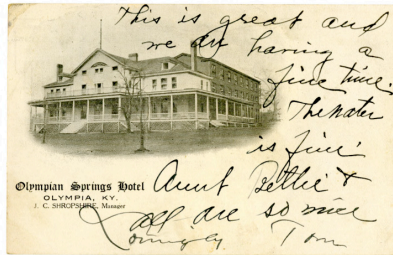 This is great and
we are having a
fine time.
The water
is fine
Aunt Bettie &
all are so nice
Lovingly Tom
Olympian Springs Hotel
OLYMPIA, KY.
J. C. SHROPSHIRE, Manager